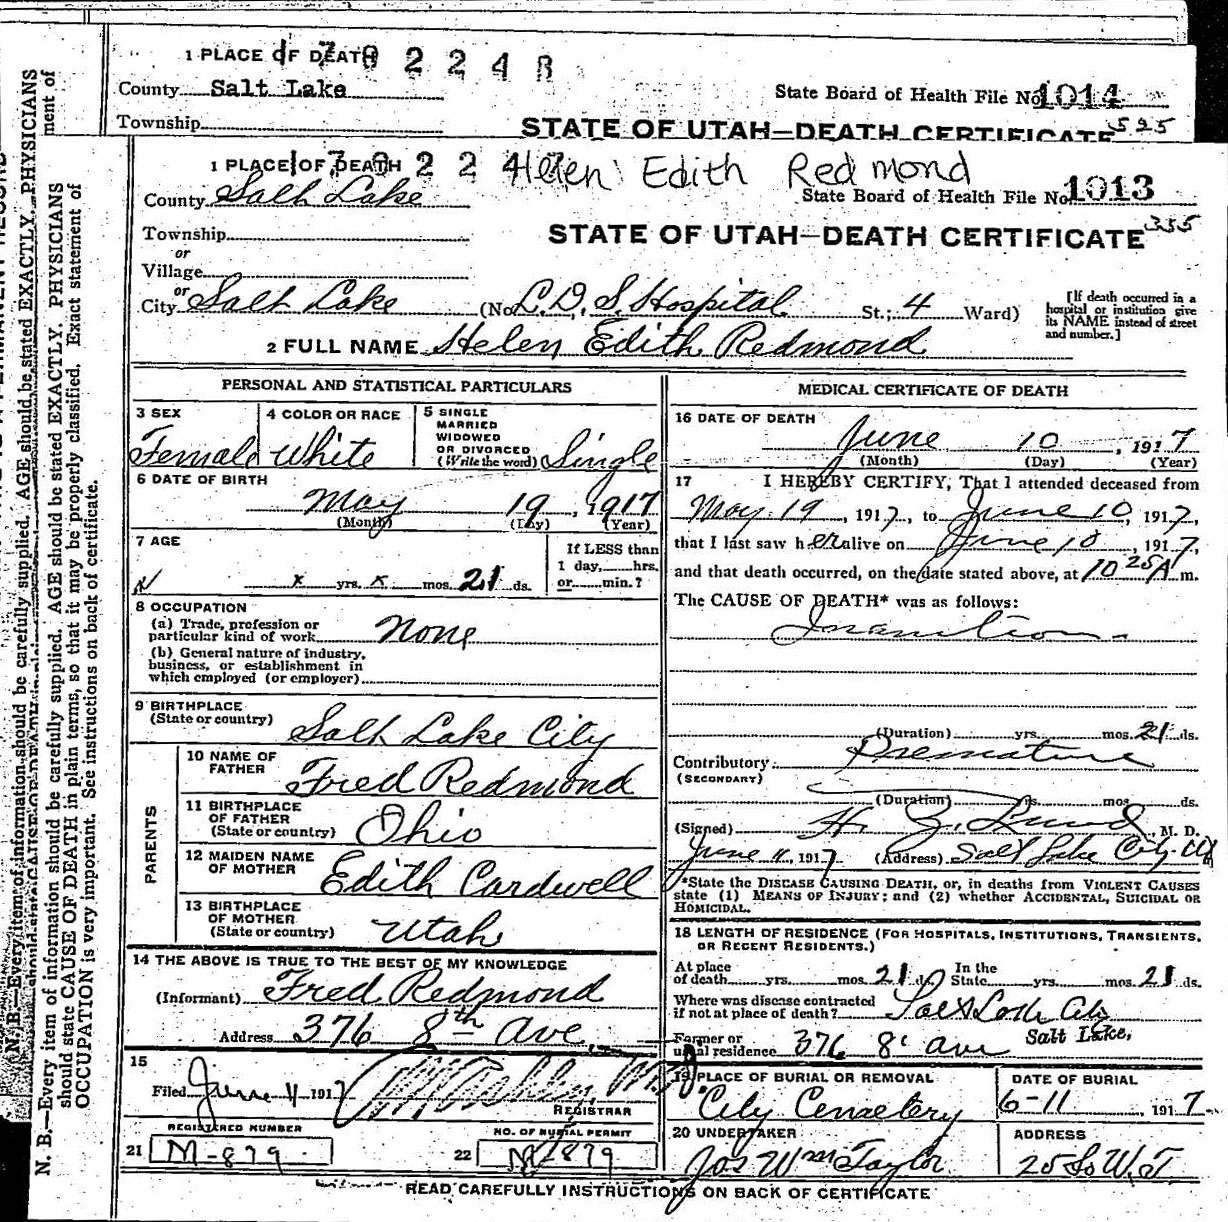 1 PLACE OF DEATH
1 7 0 2 2 4 8
County Salt Lake
State Board of Health File No. 1014
Township
STATE OF UTAH—DEATH CERTIFICATE 525
1 PLACE OF DEATH
1 7 0 2 2 4 7
Helen Edith Redmond
County Salt Lake
State Board of Health File No. 1013
Township
STATE OF UTAH—DEATH CERTIFICATE 355
or
Village
or
City Salt Lake (No. L. D. S. Hospital St.; 4 Ward)
[If death occurred in a
hospital or institution give
its NAME instead of street
and number.]
2 FULL NAME Helen Edith Redmond
PERSONAL AND STATISTICAL PARTICULARS
3 SEX
Female
4 COLOR OR RACE
White
5 SINGLE
MARRIED
WIDOWED
OR DIVORCED
(Write the word) Single
6 DATE OF BIRTH
May 19, 1917
(Month) (Day) (Year)
7 AGE
x yrs. x mos. 21 ds.
If LESS than
1 day,......hrs.
or......min.?
8 OCCUPATION
(a) Trade, profession or
particular kind of work None
(b) General nature of industry,
business, or establishment in
which employed (or employer)
9 BIRTHPLACE
(State or country)
Salt Lake City
PARENTS
10 NAME OF
FATHER
Fred Redmond
11 BIRTHPLACE
OF FATHER
(State or country)
Ohio
12 MAIDEN NAME
OF MOTHER
Edith Cardwell
13 BIRTHPLACE
OF MOTHER
(State or country)
Utah
14 THE ABOVE IS TRUE TO THE BEST OF MY KNOWLEDGE
(Informant) Fred Redmond
Address 376 8th Ave.
15
Filed June 11 1917
REGISTRAR
REGISTERED NUMBER
21 M-879
NO. OF BURIAL PERMIT
22 M-879
MEDICAL CERTIFICATE OF DEATH
16 DATE OF DEATH
June 10, 1917
(Month) (Day) (Year)
17 I HEREBY CERTIFY, That I attended deceased from
May 19, 1917, to June 10, 1917,
that I last saw her alive on June 10, 1917,
and that death occurred, on the date stated above, at 10 25 A m.
The CAUSE OF DEATH* was as follows:
Inanition
(Duration) yrs. mos. 21 ds.
Contributory Premature
(SECONDARY)
(Duration) yrs. mos. ds.
(Signed) H. Z. Lund, M. D.
June 11, 1917 (Address) Salt Lake City Ut
*State the DISEASE CAUSING DEATH, or, in deaths from VIOLENT CAUSES
state (1) MEANS OF INJURY; and (2) whether ACCIDENTAL, SUICIDAL OR
HOMICIDAL.
18 LENGTH OF RESIDENCE (FOR HOSPITALS, INSTITUTIONS, TRANSIENTS,
OR RECENT RESIDENTS.)
At place
of death yrs. mos. 21 ds.
In the
State yrs. mos. 21 ds.
Where was disease contracted
if not at place of death? Salt Lake City
Former or
usual residence 376 8' ave Salt Lake,
19 PLACE OF BURIAL OR REMOVAL
City Cemetery
DATE OF BURIAL
6-11, 1917
20 UNDERTAKER
Jos Wm Taylor
ADDRESS
25 So W. T
READ CAREFULLY INSTRUCTIONS ON BACK OF CERTIFICATE
N. B.—Every item of information should be carefully supplied. AGE should be stated EXACTLY. PHYSICIANS
should state CAUSE OF DEATH in plain terms, so that it may be properly classified. Exact statement of
OCCUPATION is very important. See instructions on back of certificate.
N. B.—Every item of information should be carefully supplied. AGE should be stated EXACTLY. PHYSICIANS